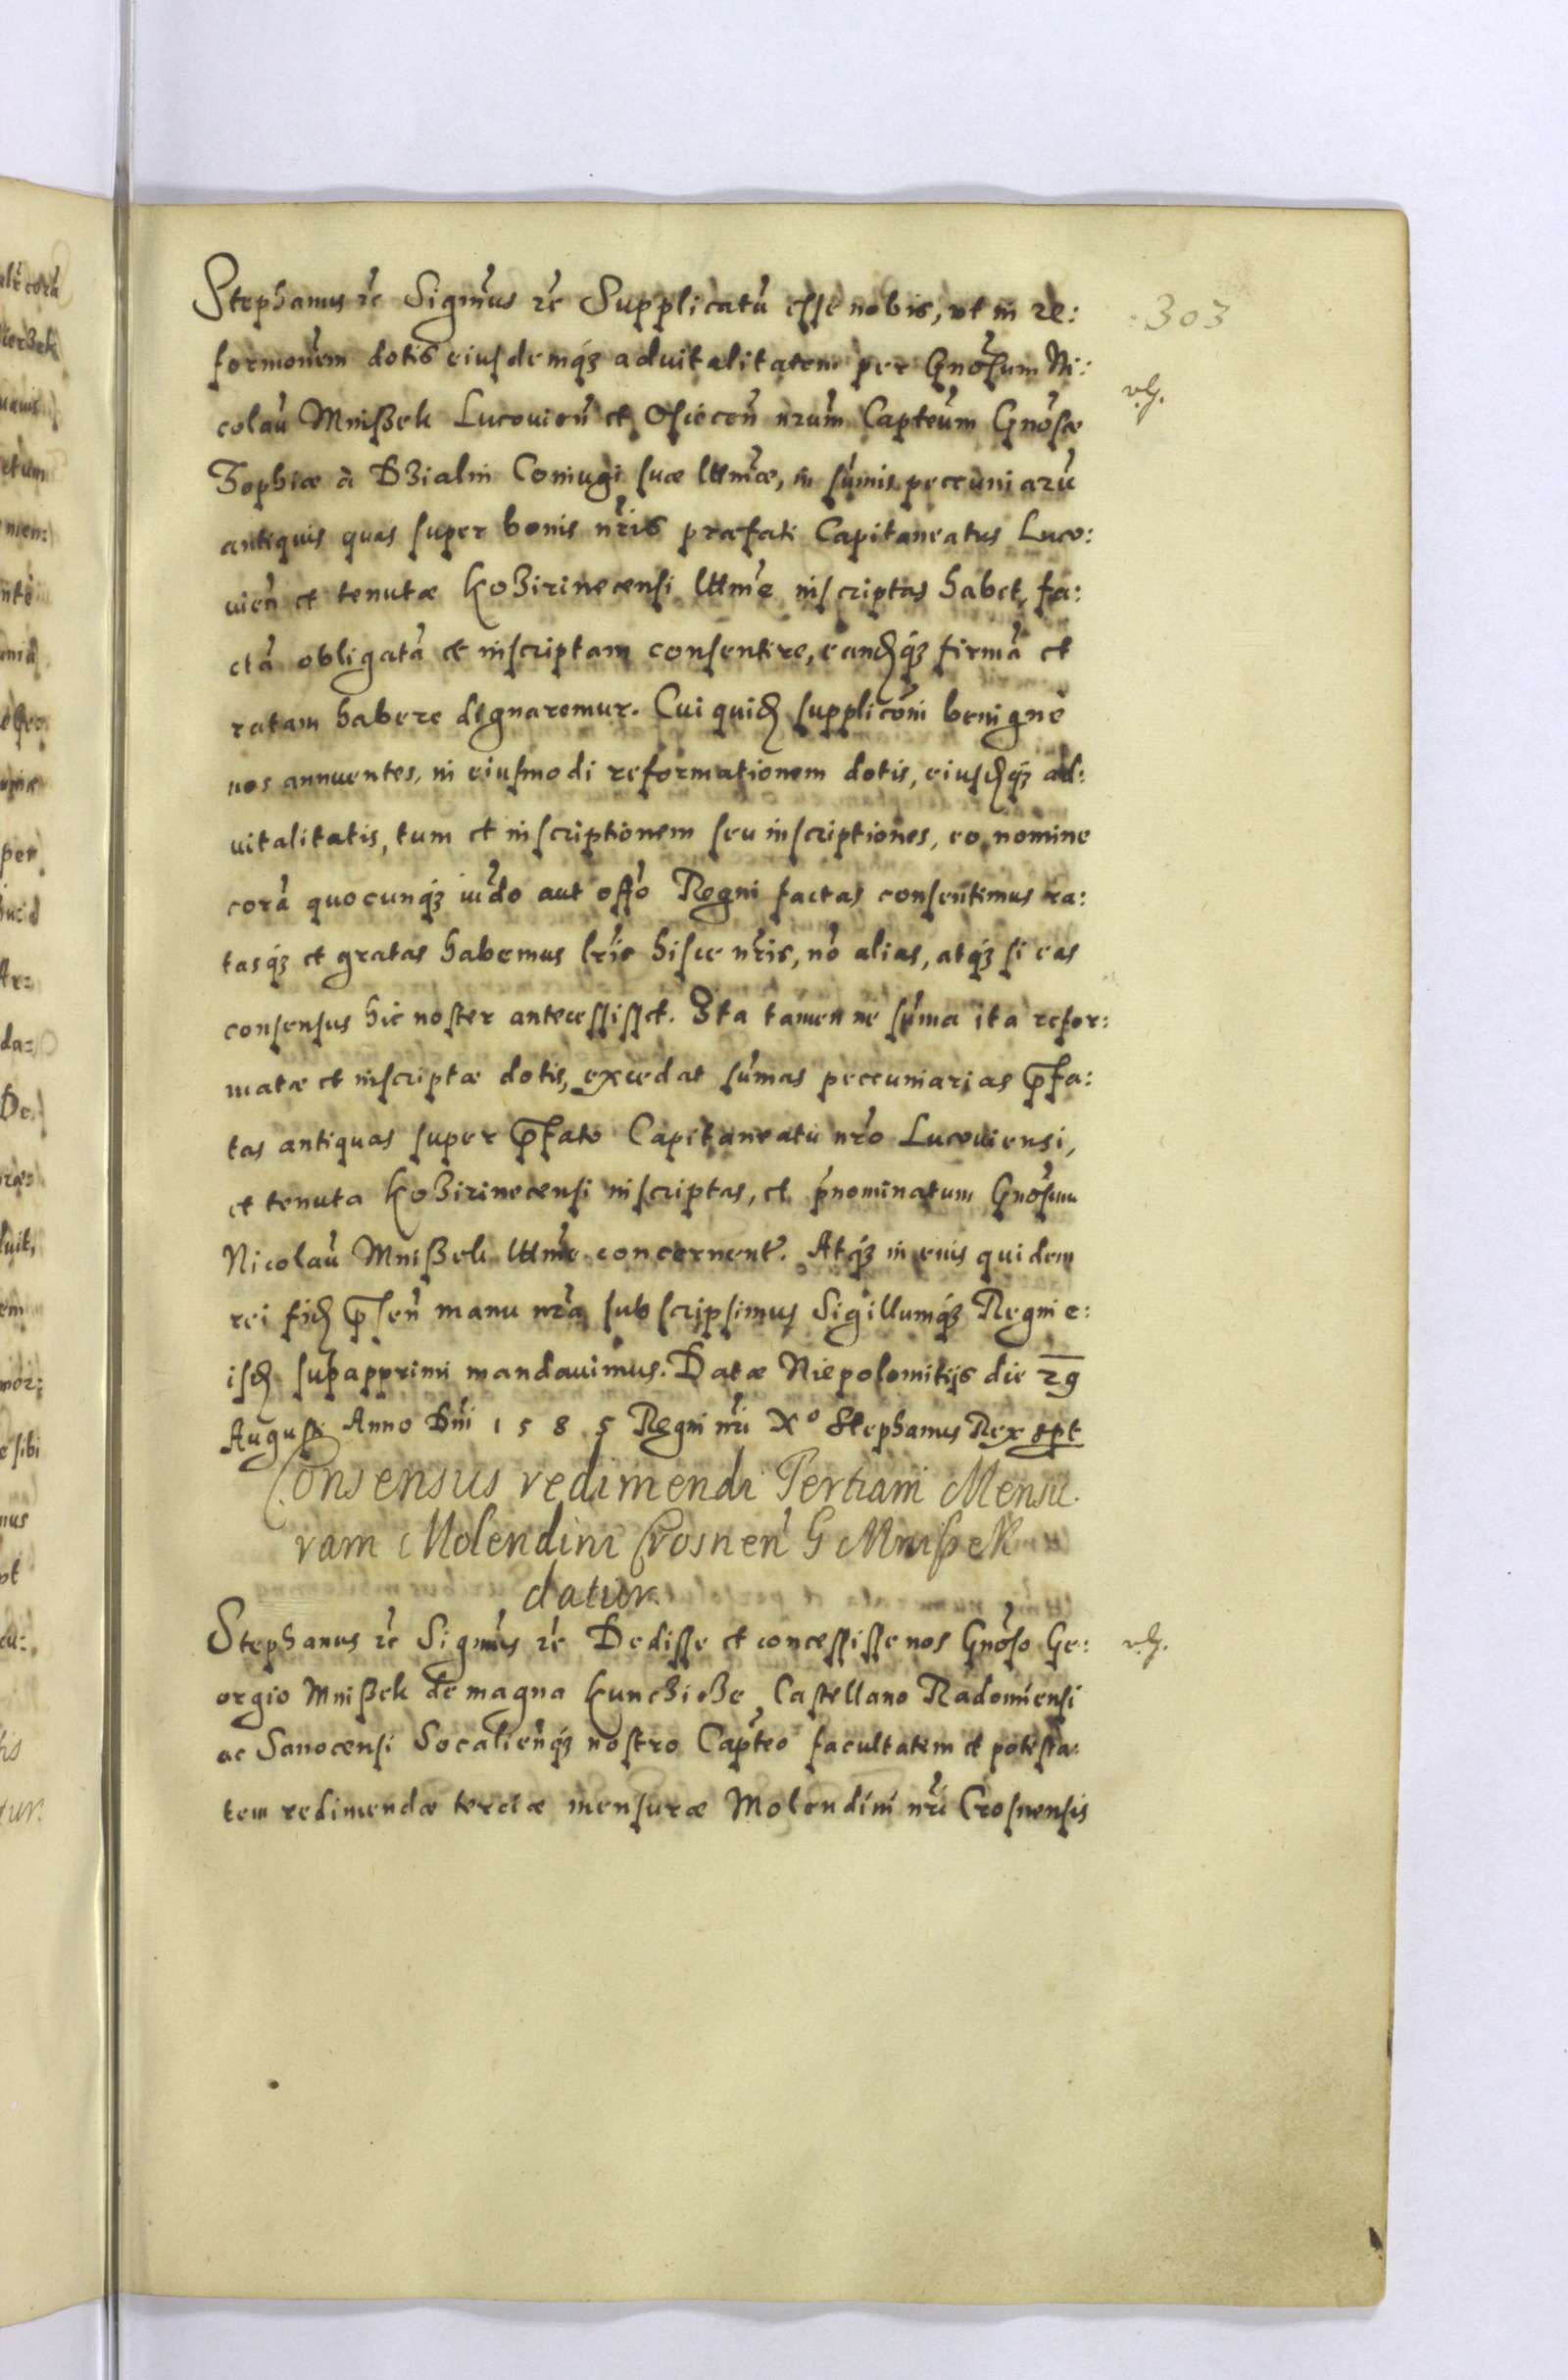 303
Stephanus rc̃ Signm̃us rc̃ Supplicatũ esse nobis, vt in re:
formonẽm dotis eiusdemq́ꝫ aduitalitatem per Gnõsum Ni:
colaũ Mnißek Lucouień et Osiecen̄ nr̃um Capteũm Gnõsæ
Zophiæ à Dzialin Coniugi suæ lttm̃æ, in sum̃is pecuniarũ
antiquis quas super bonis nr̃is præfati Capitaneatus Luco:
uien̄ et tenutæ Kozirinecensi lttm̃e inscriptas habet, fa:
ctã obligatã et inscriptam consentire, eandq́ꝫ firmã et
ratam habere dignaremur. Cui quid supplicõni benignè
nos annuentes, in eiusmodi reformationem dotis, eiusdq́ꝫ ad:
uitalitatis, tum et inscriptionem seu inscriptiones, eo nomine
corã quocunq́ꝫ iud̃o aut offõ Regni factas consentimus ra:
tasq́ꝫ et gratas habemus lr̃is hisce nr̃is, nõ alias, atq́ꝫ si eas
consensus hic noster antecessisset. Ita tamen ne sum̃a ita refor:
matæ et inscriptæ dotis, excedat sum̃as pecuniarias p̄fa:
tas antiquas super p̄fato Capitaneatu nr̃o Lucouiensi,
et tenuta Kozirinecensi inscriptas, et p̃nominatum Gnõsum
Nicolaũ Mnißek lttm̃e concernent̃. Atq́ꝫ in euis quidem
rei fid p̄sen̄ manu nr̃a subscripsimus Sigillumq́ꝫ Regni e:
isd subapprimi mandauimus. Datæ Niepolomitijs die 29
Augusti Anno Dñi 1585 Regni nr̃i X° Stephanus Rex spt
Consensus redimendi Tertiam Mensu
ram Molendini Crosnen̄ G Mnißek
datur.
Stephanus rc̃ Signm̃us rc̃ Dedisse et concessisse nos Gnõso Ge:
orgio Mnißek de magna Kunchicze, Castellano Radomiensi
ac Sanocensi Socalieñq́ꝫ nostro Capteõ facultatem et potesta:
tem redimendæ terciæ mensuræ Molendini nr̃i Crosnensis